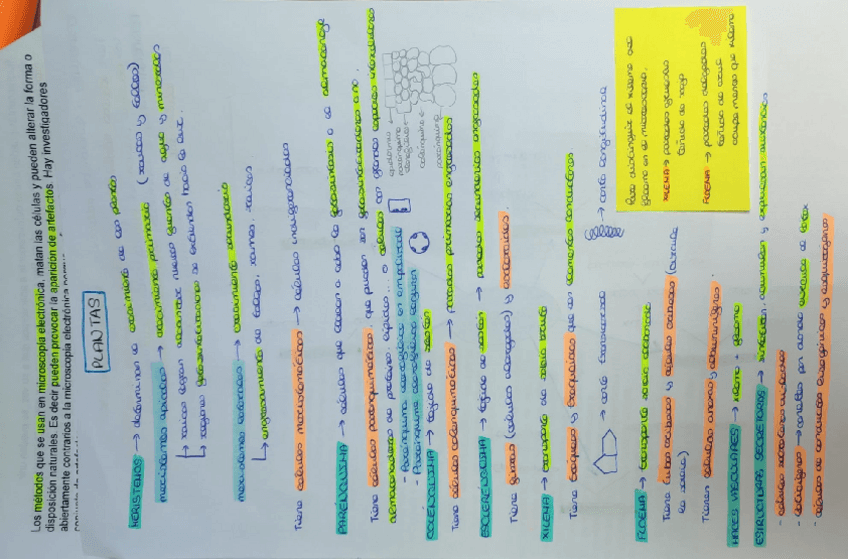 Los métodos que se usan en microscopía electrónica, matan las células y pueden alterar la forma o
disposición naturales. Es decir pueden provocar la aparición de artefactos. Hay investigadores
abiertamente contrarios a la microscopía electrónica
PLANTAS
MERISTEMOS → determinan el crecimiento de las plantas (raíces y tallos)
meristemos apicales → crecimiento primario
↳ raíces logran nuevas fuentes de agua y minerales
↳ regiones fotosintetizadoras se extienden hacia la luz.
meristemos laterales → crecimiento secundario
↳ engrosamiento de tallos, ramas, raíces
Tiene células meristemáticas → células indiferenciadas
PARÉNQUIMA → células que llevan a cabo la fotosíntesis o el almacenaje
Tiene células parenquimáticas, que pueden ser fotosintetizadoras o no.
almacenadoras de proteínas, lípidos... o células con grandes espacios intercelulares
- Parénquima clorofílico en empalizada
- Parénquima clorofílico lagunar
epidermis
parénquima
colénquima
parénquima
COLÉNQUIMA → tejido de sostén
Tiene células colenquimáticas → paredes primarias engrosadas
ESCLERÉNQUIMA → tejido de sostén → paredes secundarias engrosadas
Tiene fibras (células alargadas) y esclereidas.
XILEMA → transporte de savia bruta
Tiene tráqueas y traqueidas que son elementos conductores
→ corte transversal
→ corte longitudinal
FLOEMA → transporte savia elaborada
Tiene tubos cribosos y células cribosas (durante
Tienen células anexas y albuminíferas.
HACES VASCULARES → xilema + floema
ESTRUCTURAS SECRETORAS → sintetizan, acumulan y expulsan sustancias
- células secretoras aisladas
- laticíferos → conectados por donde circula el látex
- células de conductos lisígenos y esquizógenos
Para distinguir el xilema del
floema en el microscopio.
XILEMA → paredes gruesas
teñido de rojo
FLOEMA → paredes delgadas
teñido de azul
ocupa menos que xilema